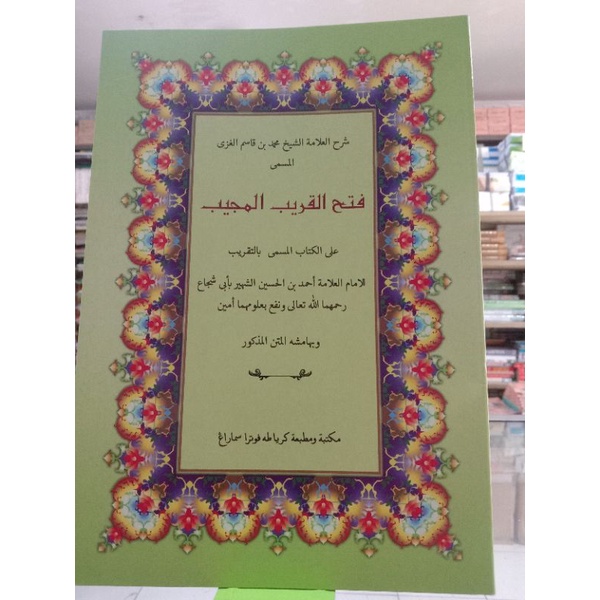 شرح العلامة الشيخ محمد بن قاسم الغزى
المسمى
فتح القريب المجيب
على الكتاب المسمى بالتقريب
للامام العلامة أحمد بن الحسين الشهير بأبي شجاع
رحمهما الله تعالى ونفع بعلومهما أمين
وبهامشه المتن المذكور
مكتبة ومطبعة كرياطه فوترا سماراڠ